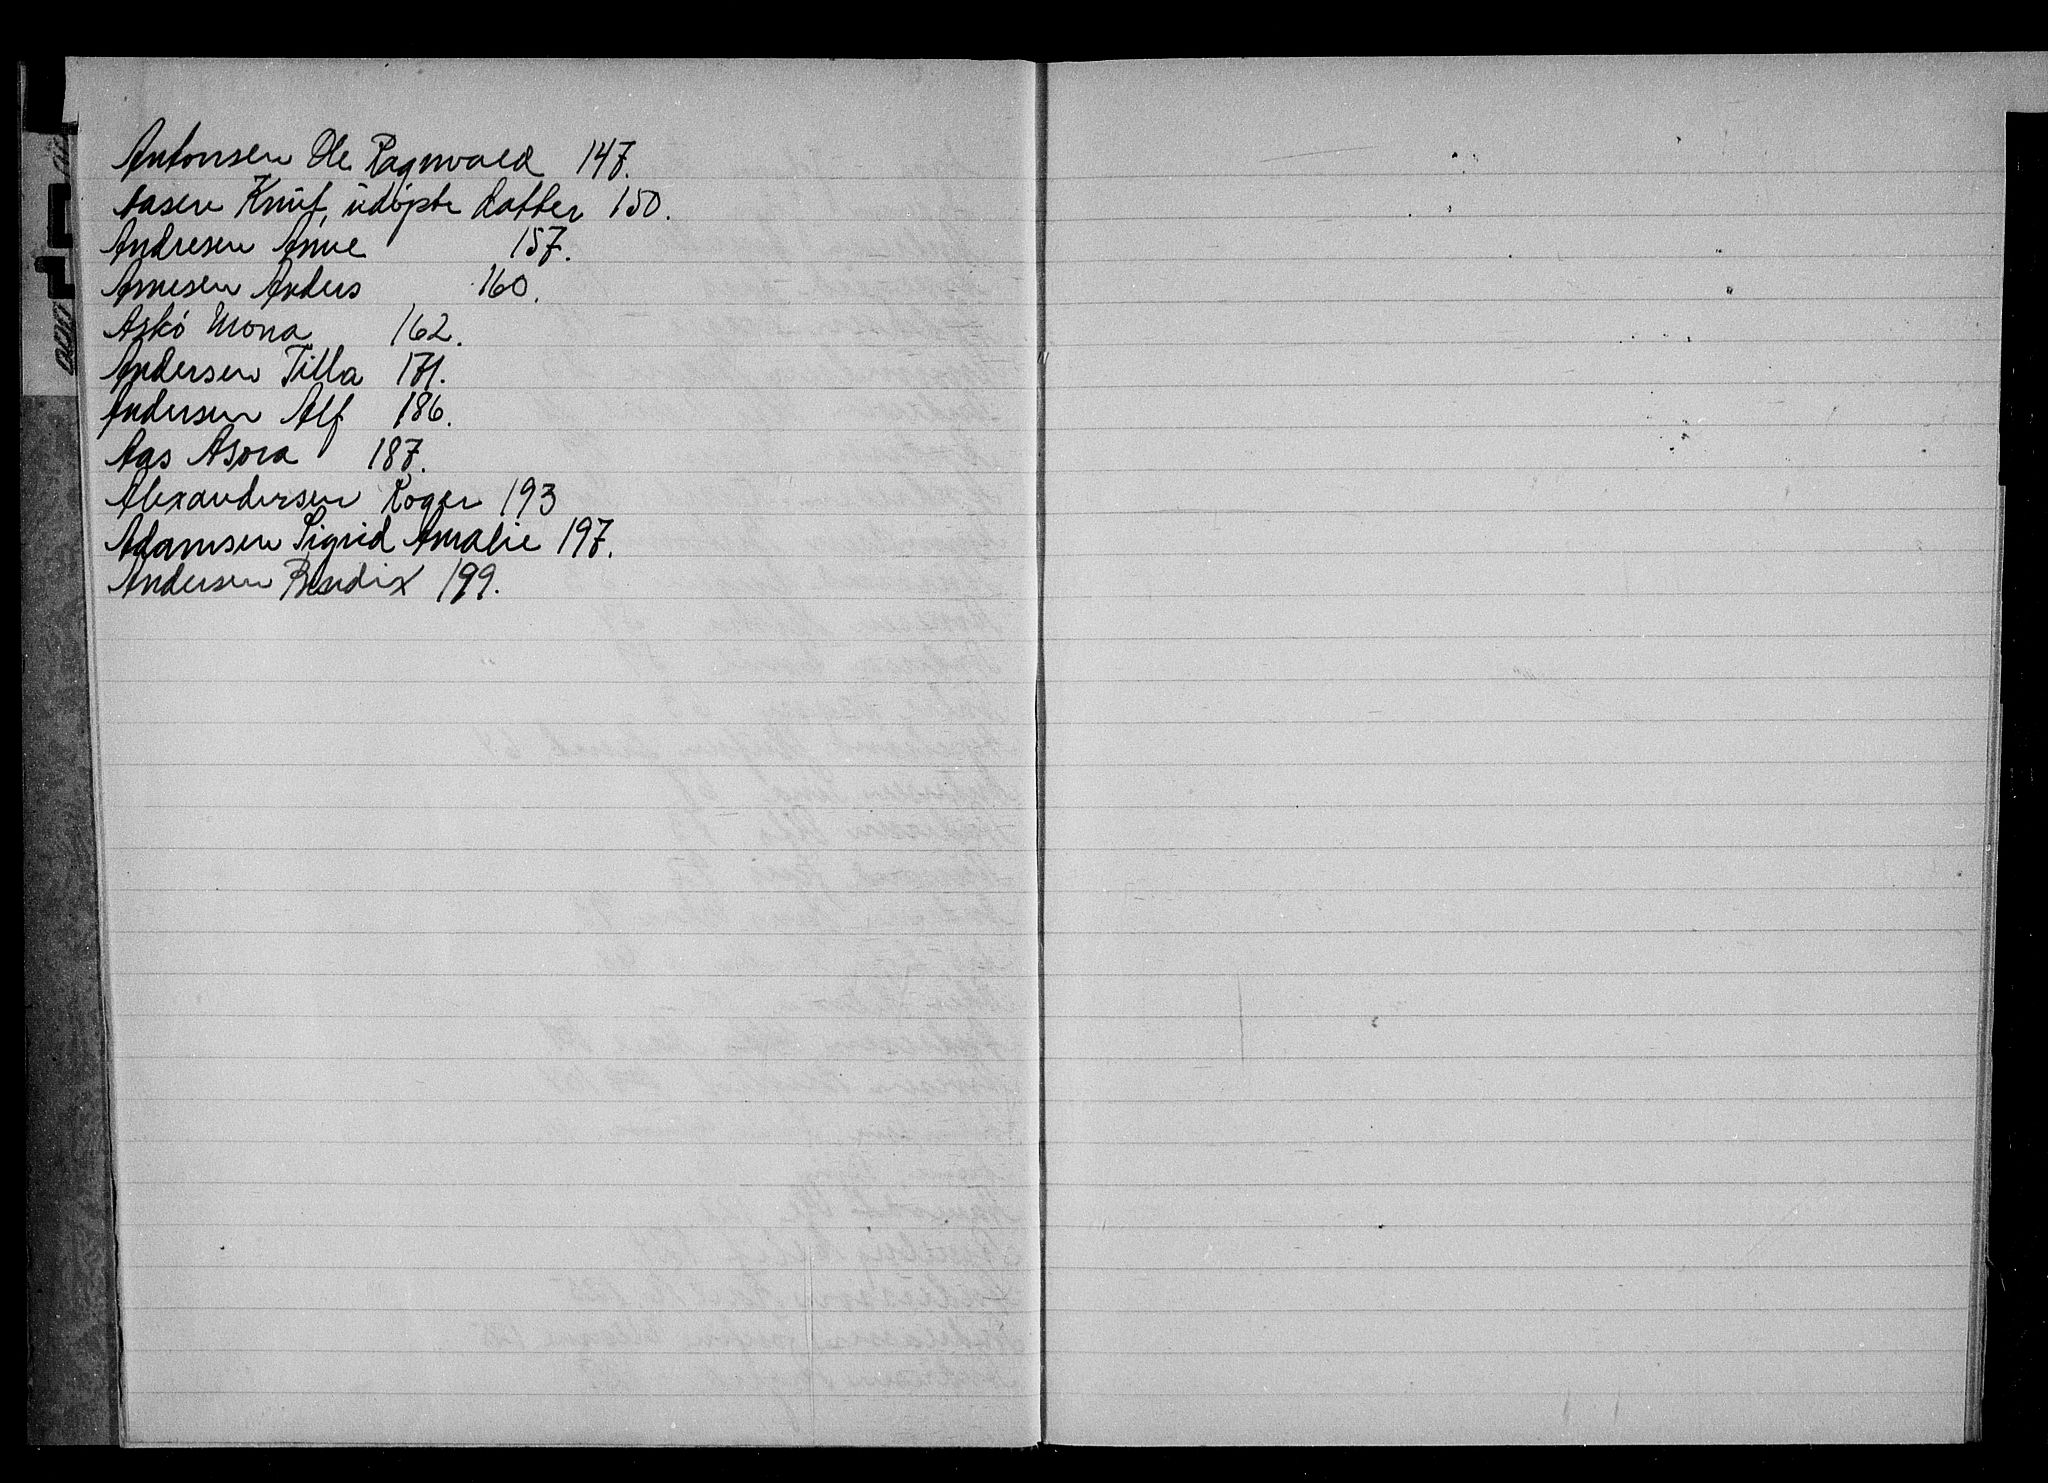 Antonsen Ole Ragnvald 147.
Aasen Knut, udøpte datter 150.
Andresen Anne 157.
Arnesen Anders 160.
Askø Mona 162.
Andersen Tilla 171.
Andersen Alf 186.
Aas Asora 187.
Alexandersen Roger 193
Adamsen Sigrid Amalie 197.
Andersen Bendix 199.